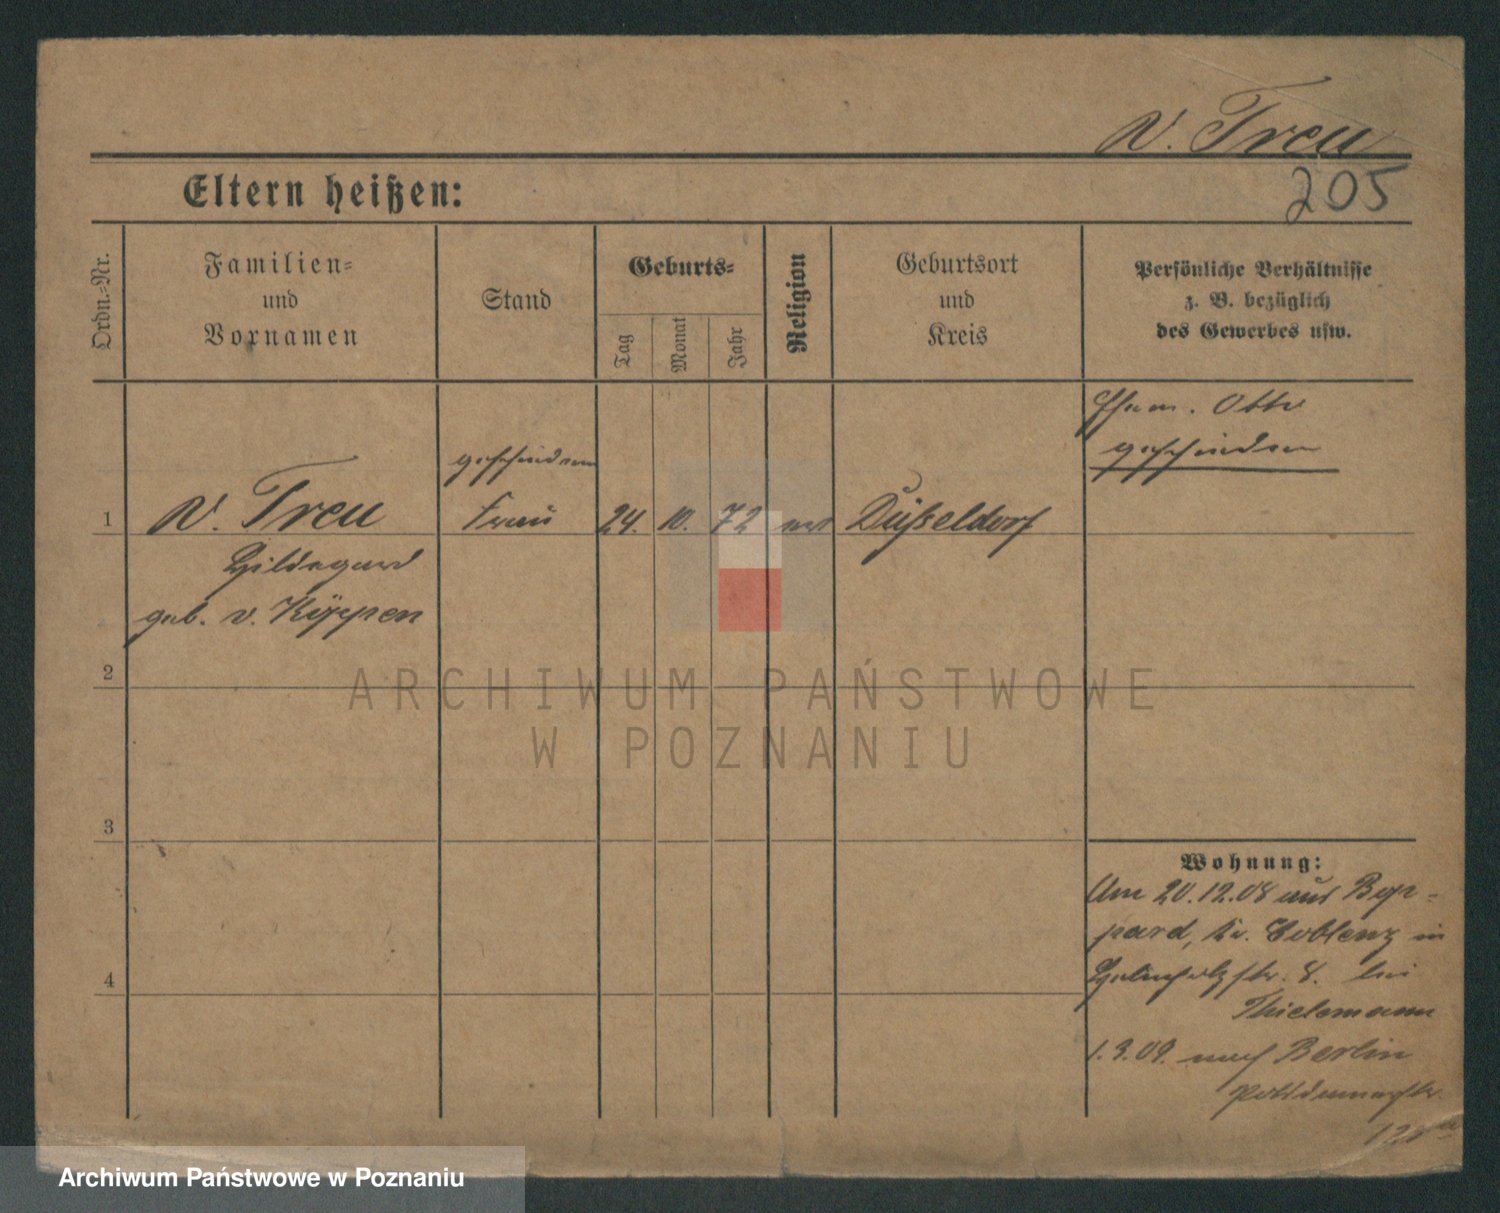 v. Treu
Eltern heißen:
205
Ordn.-Nr.
Familien-
und
Vornamen
Stand
Geburts-
Tag
Monat
Jahr
Religion
Geburtsort
und
Kreis
Persönliche Verhältnisse
z. B. bezüglich
des Gewerbes usw.
Ehem. Otto
geschieden
geschiedene
1 v. Treu Frau 24. 10. 72 Düßeldorf
Hildegard
geb. v. Köppen
2
3
4
Wohnung:
Am 20.12.08 aus Bop-
pard, Kr. Coblenz in
8. bei
Thielemann
1.3.09. nach Berlin
ARCHIWUM PAŃSTWOWE
W POZNANIU
Archiwum Państwowe w Poznaniu